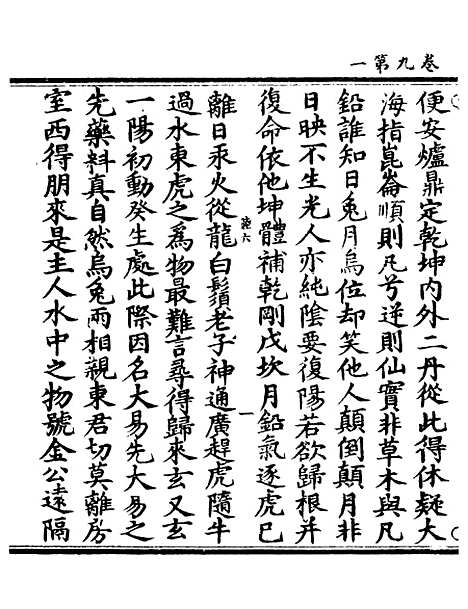 卷九第一
便安爐鼎定乾坤內外二丹從此得休疑大
海指崑崙順則凡兮逆則仙實非草木與凡
鉛誰知日兔月烏位却笑他人顛倒顛月非
日映不生光人亦純陰要復陽若欲歸根并
復命依他坤體補乾剛戊坎月鉛氣逐虎巳
一
離日汞火從龍白鬚老子神通廣趕虎隨牛
過水東虎之爲物最難言尋得歸來玄又玄
一陽初動癸生處此際因名大易先大易之
先藥料真自然烏兔兩相親東君切莫離房
室西得朋來是主人水中之物號金公遠隔